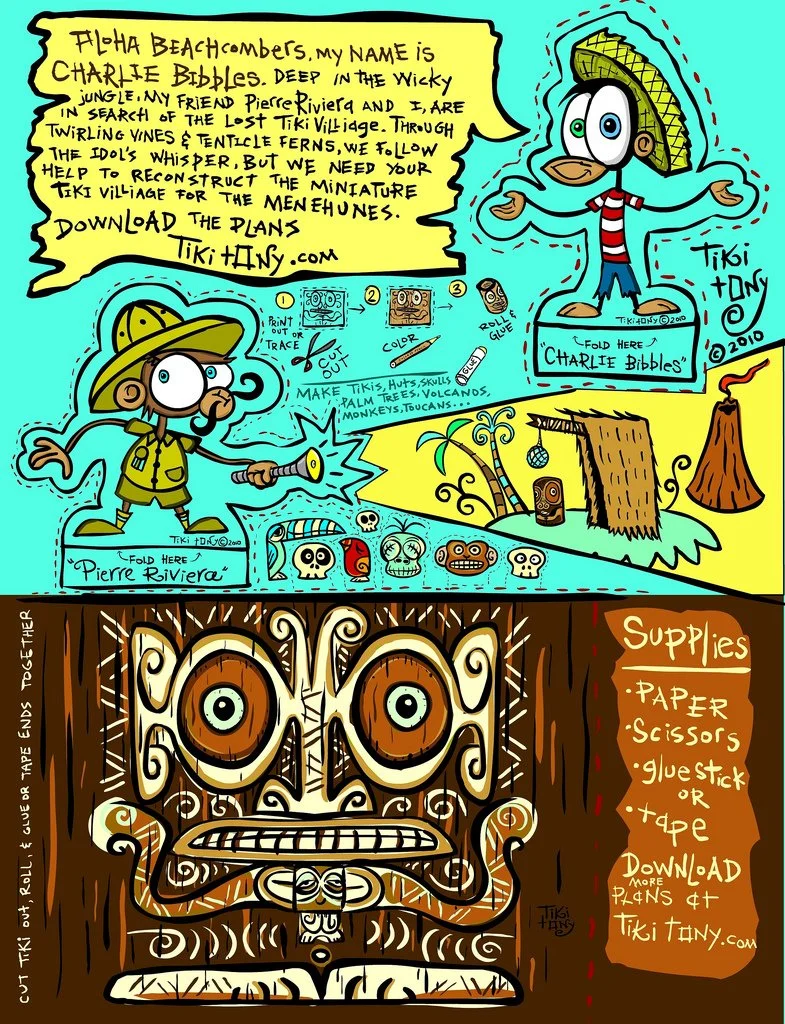 ALOHA BEACHCOMBERS, MY NAME IS
CHARLIE BIBBLES. DEEP IN THE WICKY
JUNGLE, MY FRIEND PIERRE RIVIERA AND I, ARE
IN SEARCH OF THE LOST TIKI VILLIAGE. THROUGH
TWIRLING VINES & TENTICLE FERNS, WE FOLLOW
THE IDOL'S WHISPER, BUT WE NEED YOUR
HELP TO RECONSTRUCT THE MINIATURE
TIKI VILLIAGE FOR THE MENEHUNES.
DOWNLOAD THE PLANS
TIKI TONY.COM
TIKI TONY © 2010
FOLD HERE
"CHARLIE BIBBLES"
TIKI
TONY
© 2010
1
2
3
PRINT
OUT OR
TRACE
CUT
OUT
COLOR
ROLL &
GLUE
GLUE
MAKE TIKIS, HUTS, SKULLS
PALM TREES, VOLCANOS,
MONKEYS, TOUCANS...
TIKI TONY © 2010
FOLD HERE
"PIERRE RIVIERA"
CUT TIKI OUT, ROLL, & GLUE OR TAPE ENDS TOGETHER
TIKI
TONY
SUPPLIES
• PAPER
• SCISSORS
• gluestick
OR
• tape
DOWNLOAD
MORE
PLANS at
TIKI TONY.COM